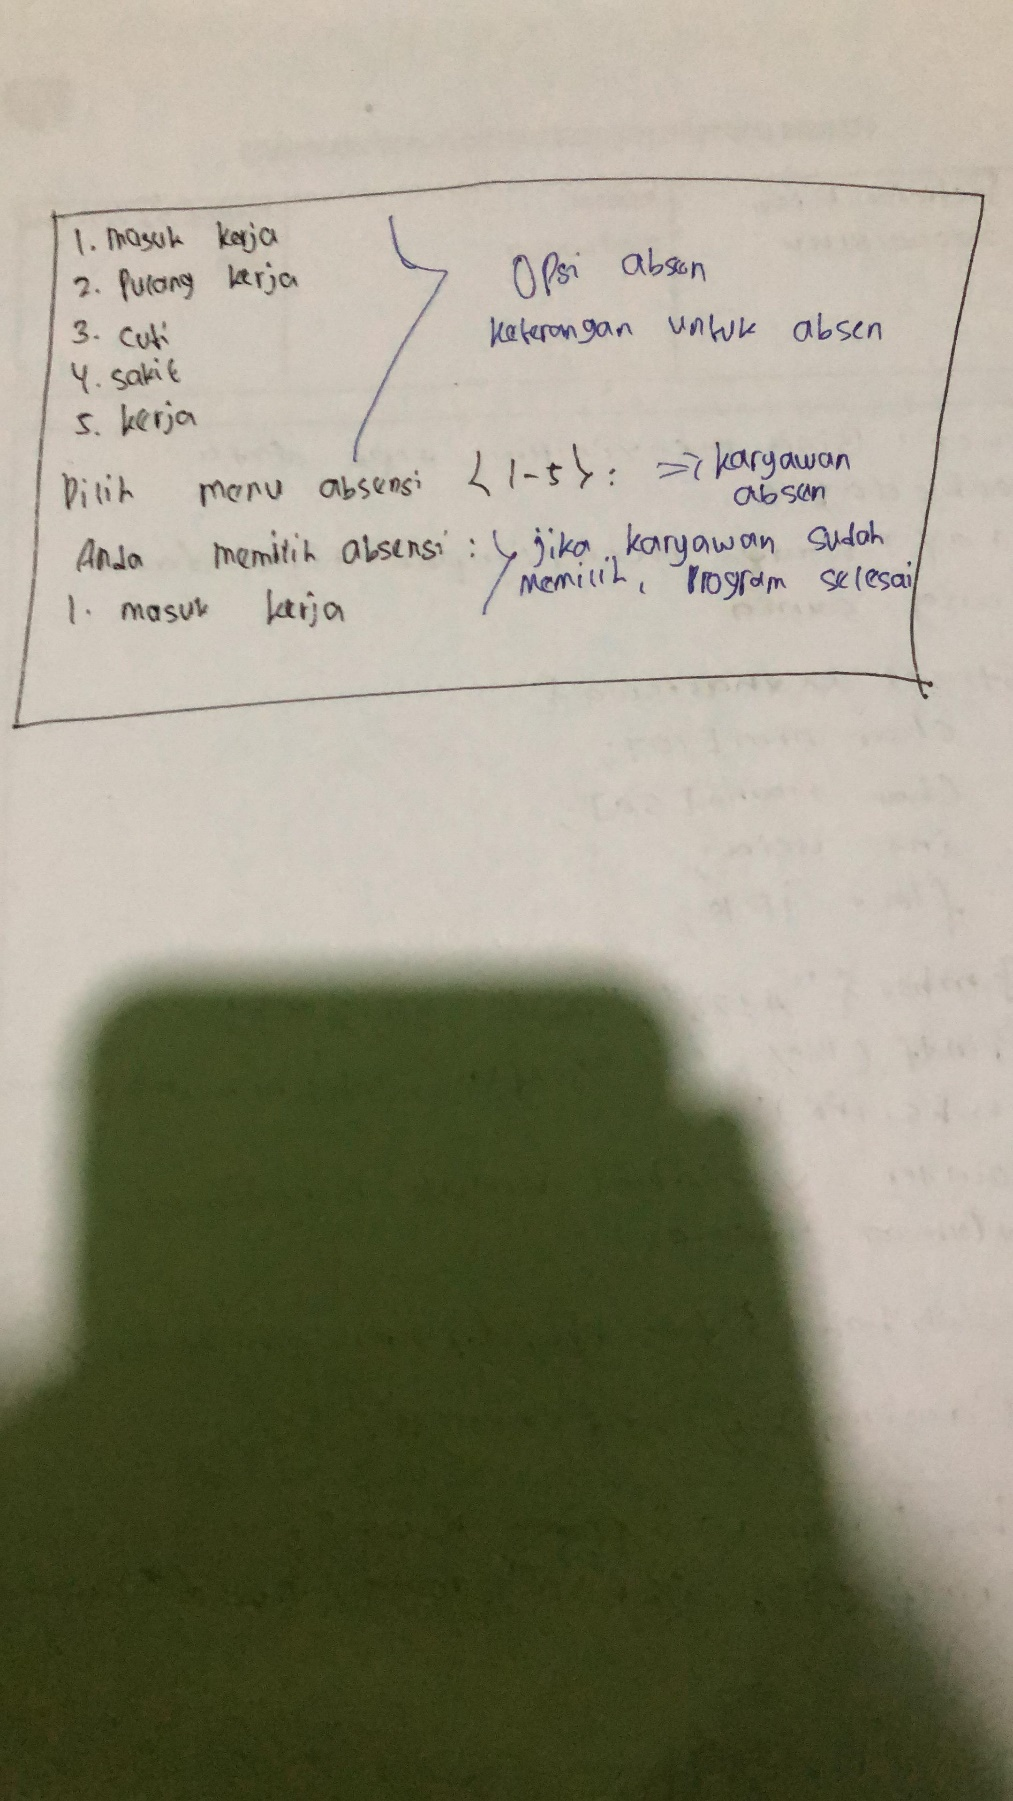 1. masuk kerja
2. Pulang kerja
3. cuti
4. sakit
5. kerja
Opsi absen
keterangan untuk absen
Pilih menu absensi {1-5}: => karyawan
absen
Anda memilih absensi : jika karyawan sudah
memilih, program selesai
1. masuk kerja